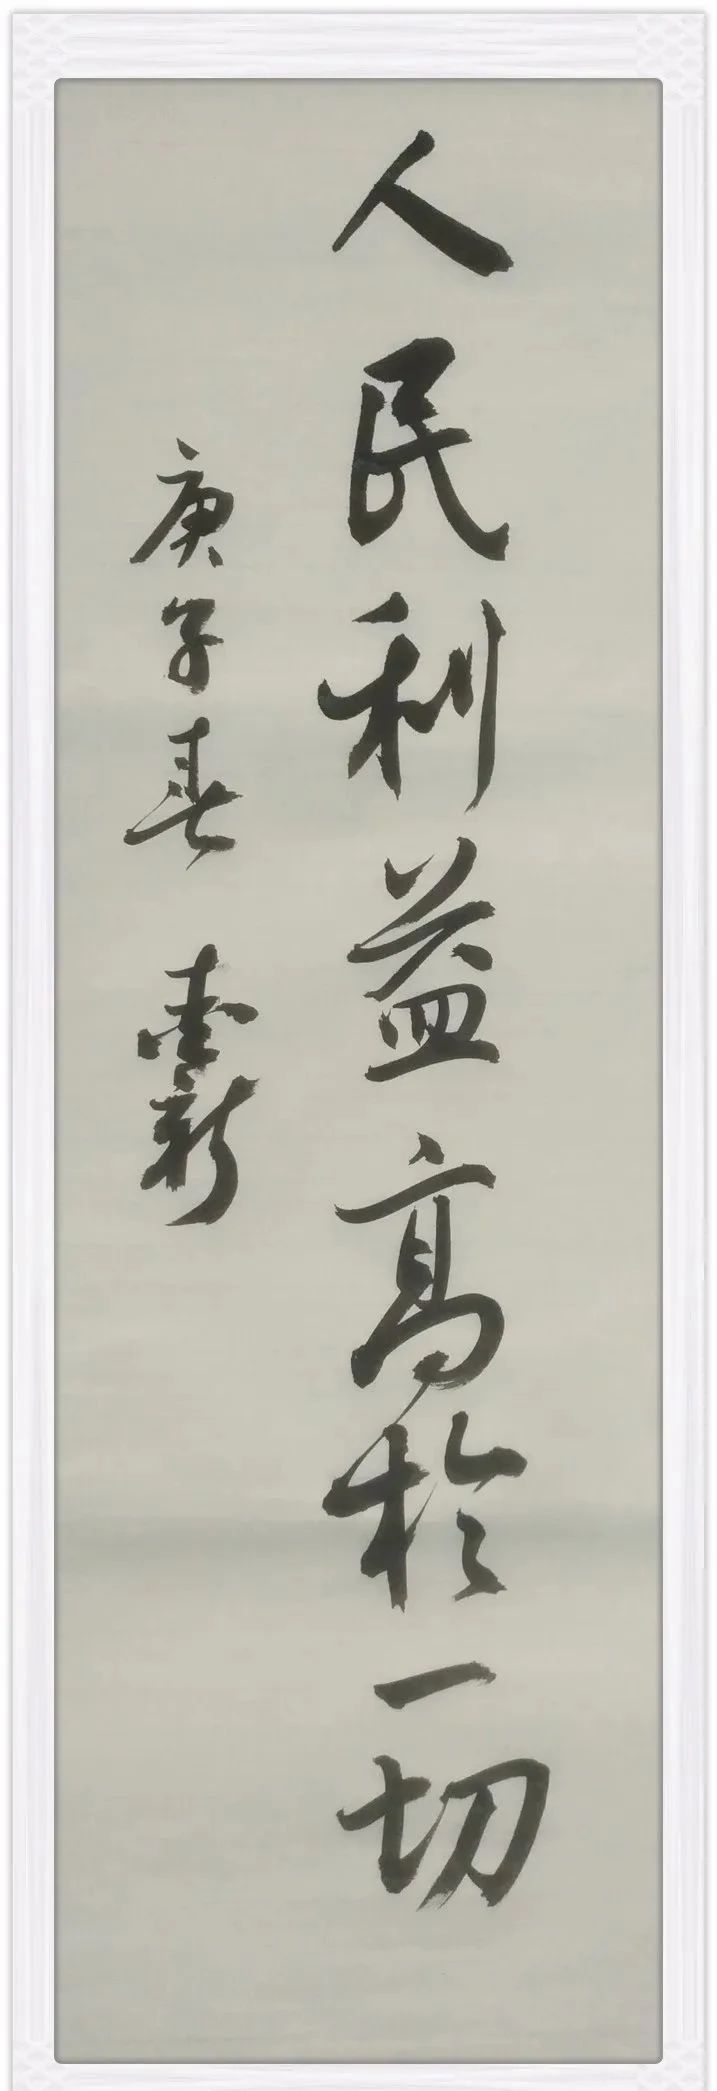 人民利益高於一切
庚子春